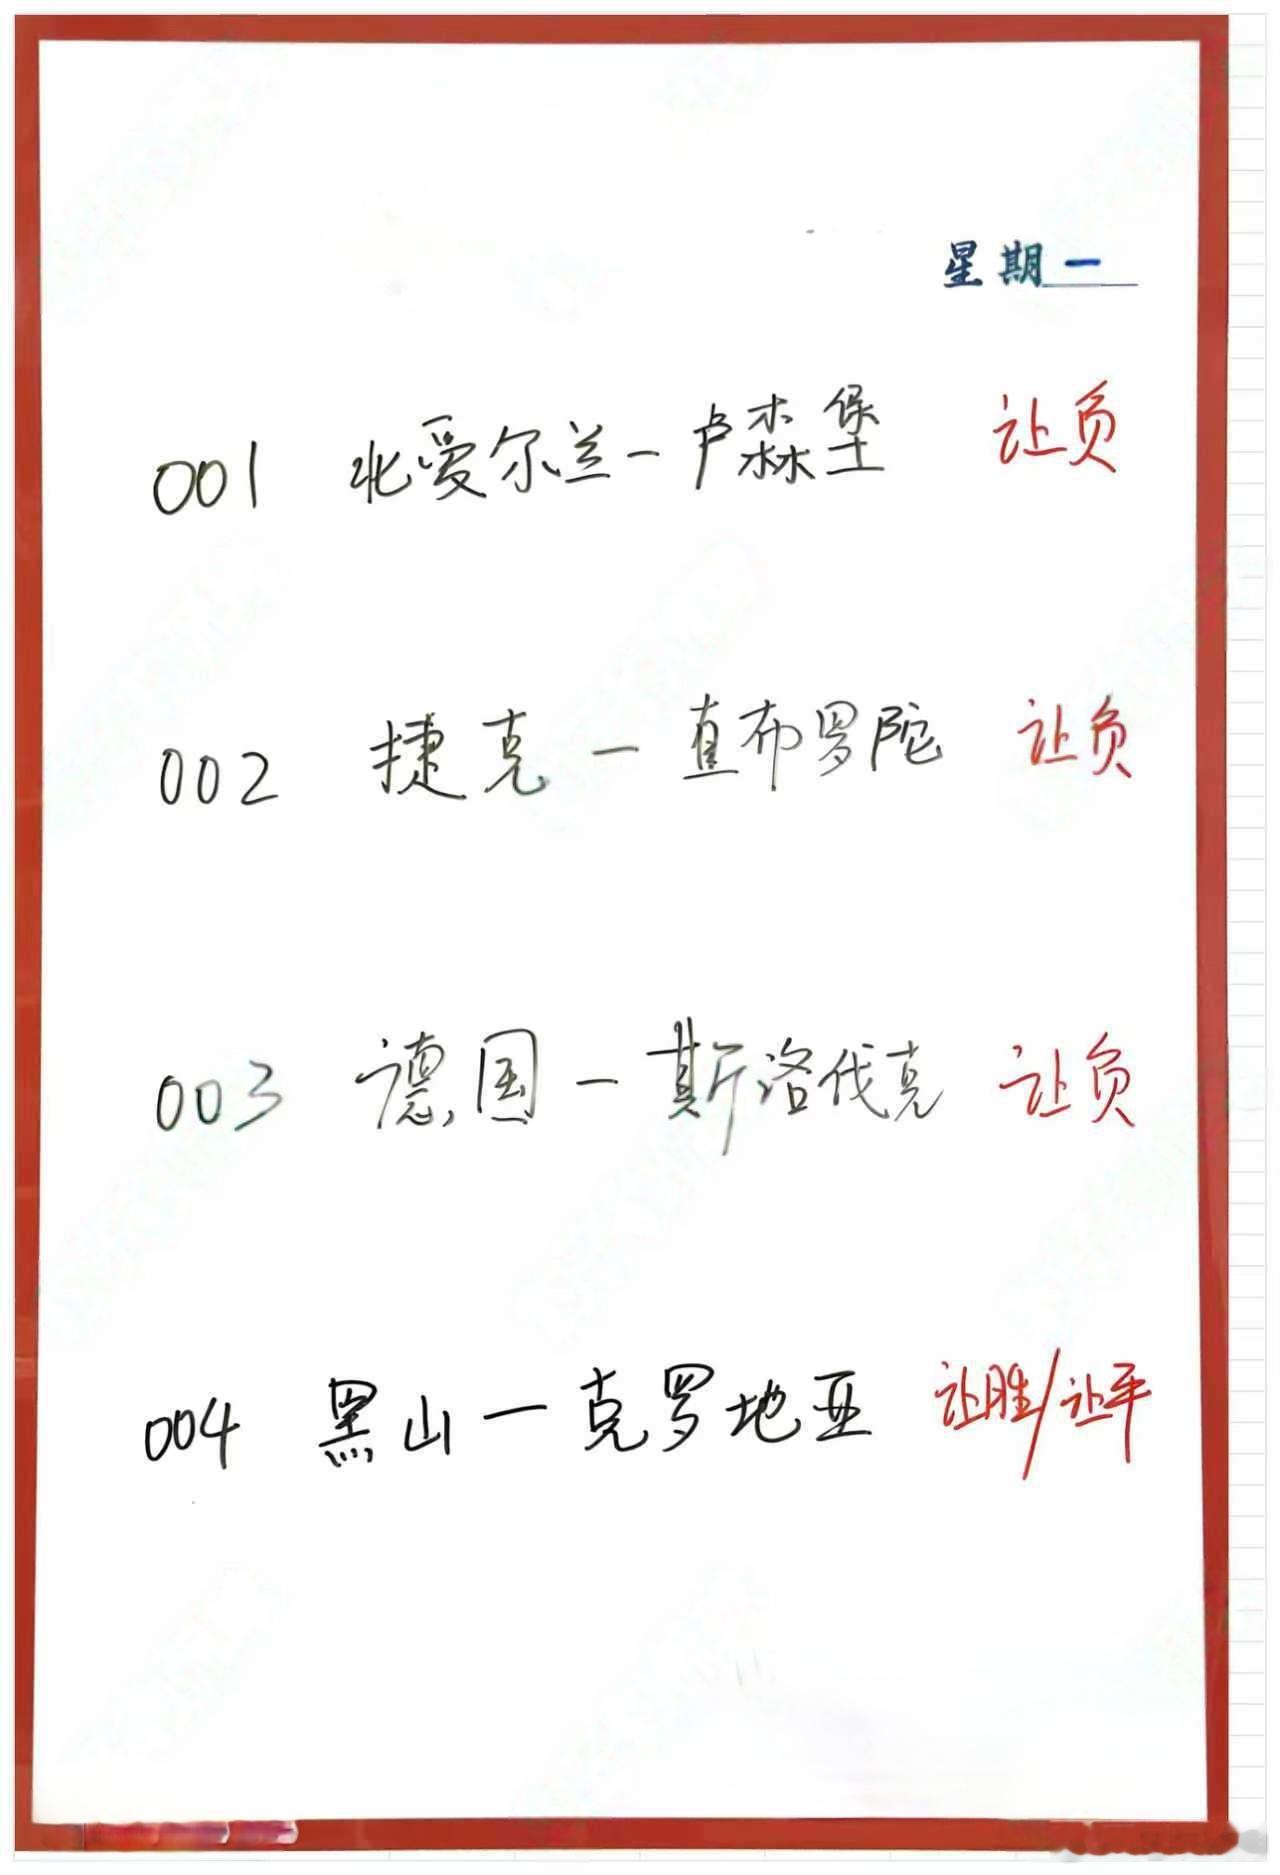 星期一
001 北爱尔兰-卢森堡 让负
002 捷克-直布罗陀 让负
003 德国-斯洛伐克 让负
004 黑山-克罗地亚 让胜/让平